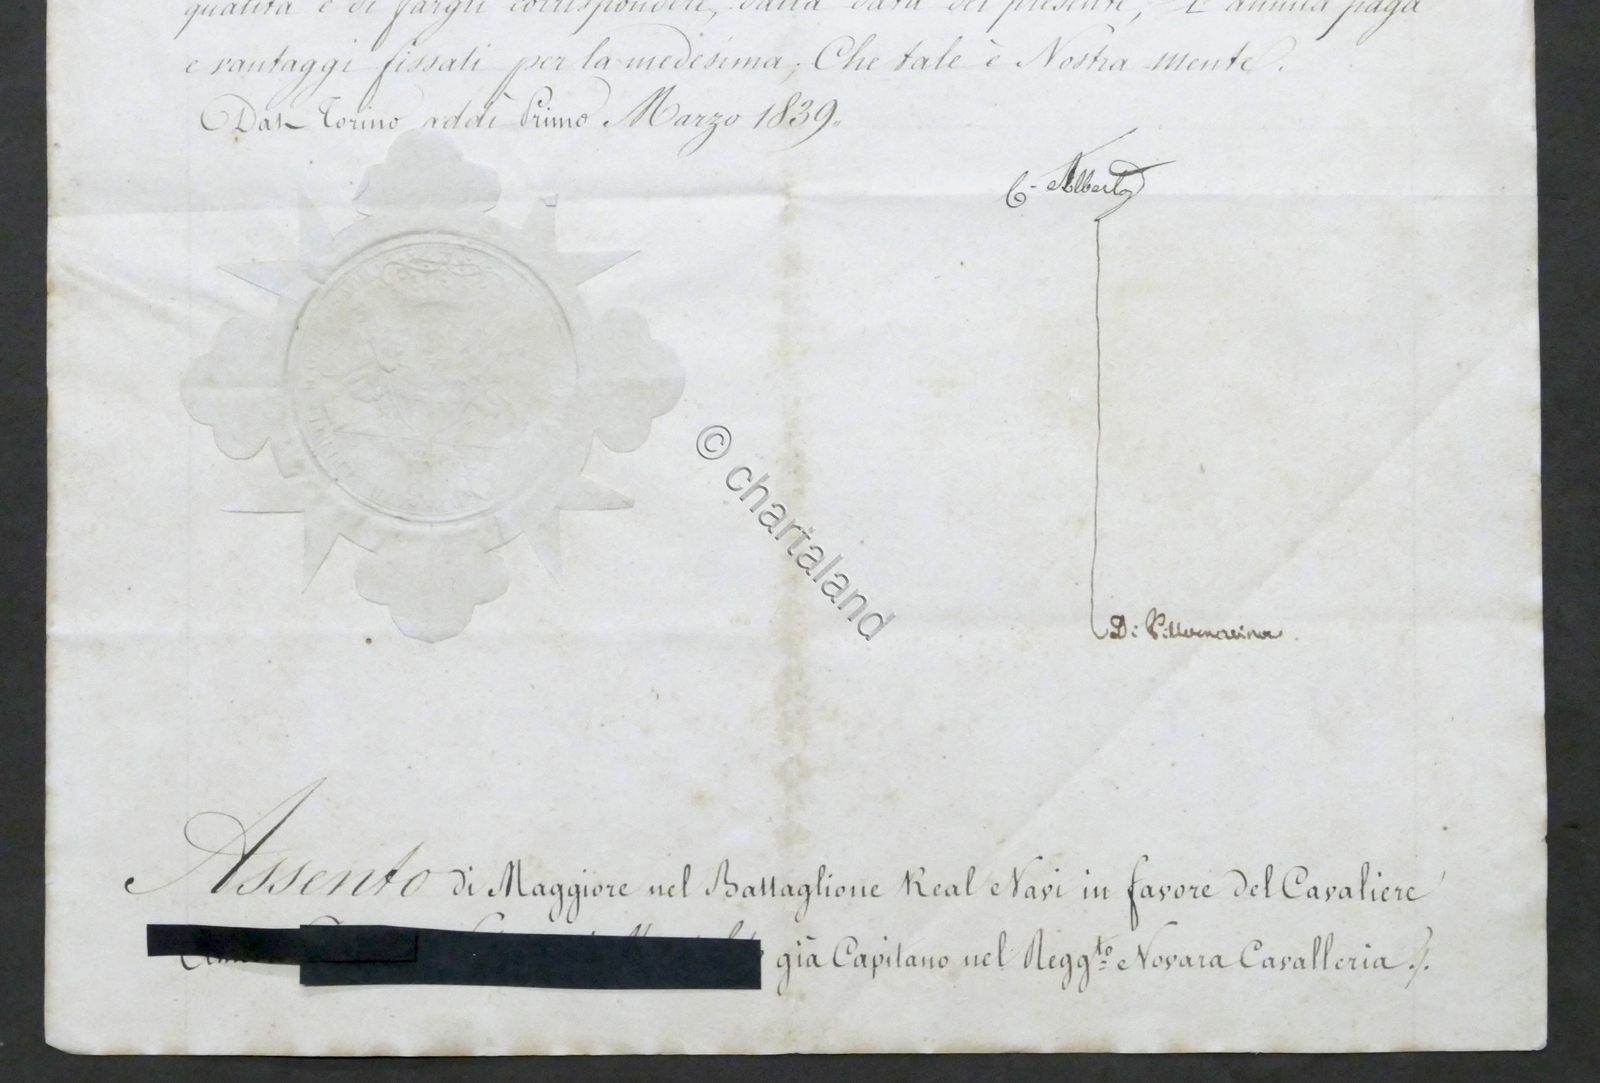 qualità e di fargli corrispondere, dalla data del presente, l'annua paga
e vantaggi fissati per la medesima; Che tale è Nostra mente.
Dat. Torino addì Primo Marzo 1839.
C. Alberto
© chartaland
Di Villamarina.
Assento di Maggiore nel Battaglione Real Navi in favore del Cavaliere
già Capitano nel Regg.to Novara Cavalleria ./.